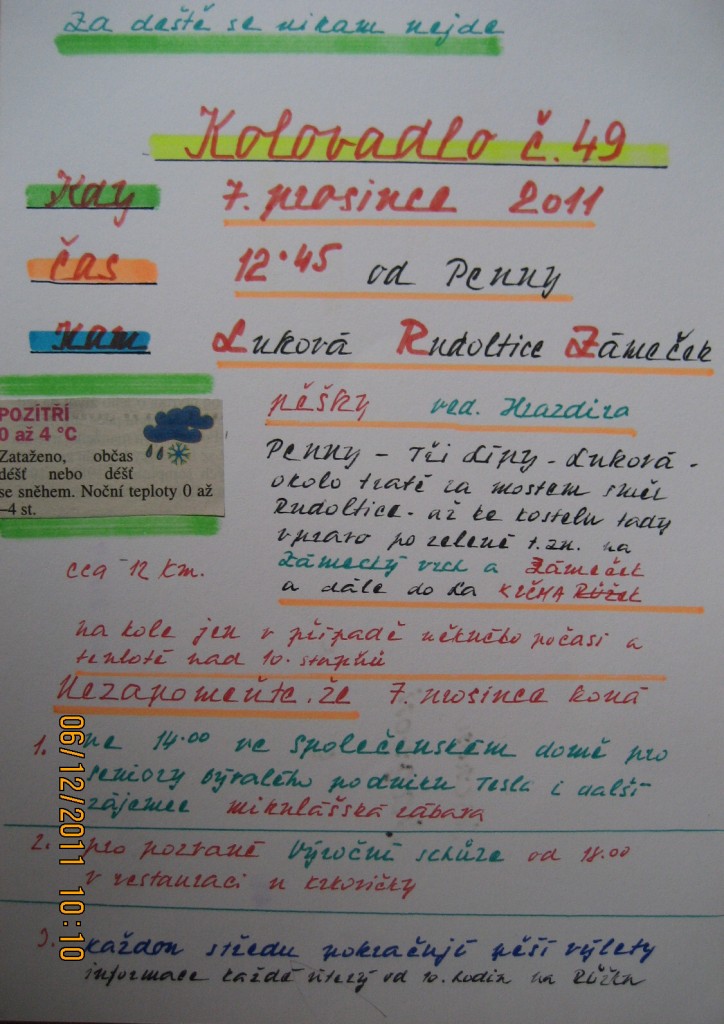 Za deště se nikam nejde
Kolovadlo č. 49
Kdy 7. prosince 2011
čas 12·45 od Penny
Kam Luková Rudoltice Zámeček
pěšky ved. Hrazdira
POZÍTŘÍ
0 až 4 °C
Zataženo, občas
déšť nebo déšť
se sněhem. Noční teploty 0 až
–4 st.
Penny – Tři Lípy – Luková -
okolo tratě za mostem směr
Rudoltice - až ke kostelu tady
vpravo po zelené t.zn. na
Zámecký vrch a Zámeček
a dále do La
cca 12 km.
na kole jen v případě počasí a
teplotě nad 10. stupňů
Nezapomeňte, že 7. prosince koná
1. ve 14·00 ve Společenském domě pro
seniory bývalého podniku Tesla i další
zájemce mikulášská zábava
2. pro pozvané Výroční schůze od 18.00
v restauraci u
3. každou středu pokračují pěší výlety
informace každé úterý od 10. hodin na Růžku
06/12/2011 10:10